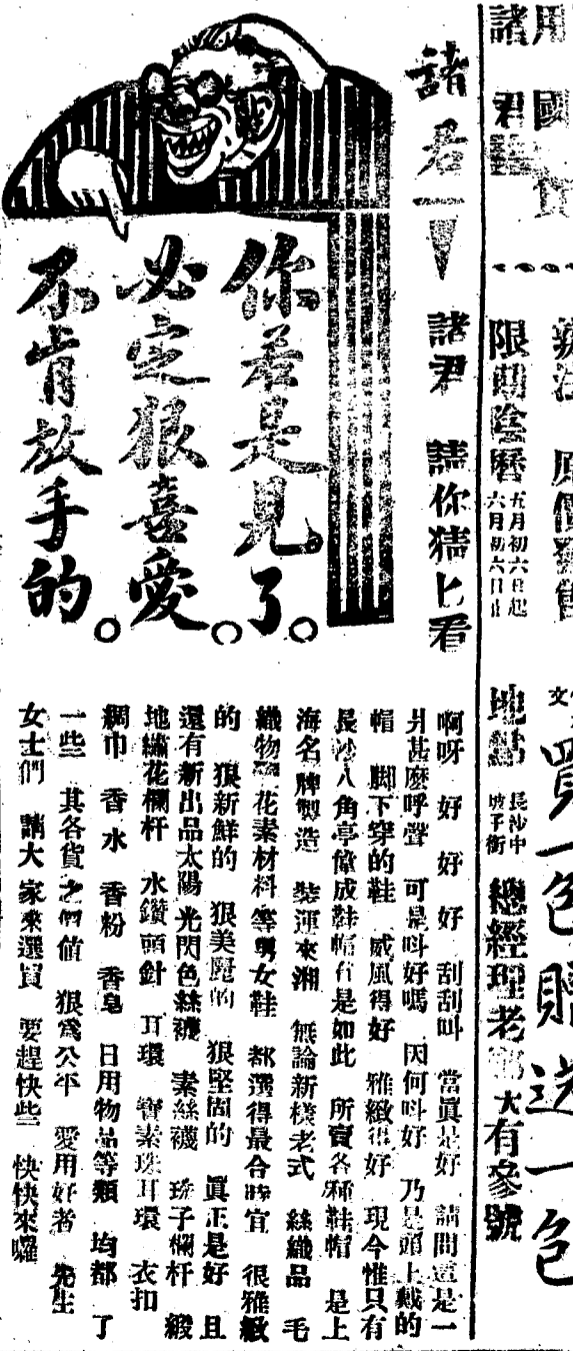 用國貨
諸君
原價發售
限期陰曆
五月初六日起
六月初六日止
買一包贈送一包
地點
長沙中
坡子街
總經理老
大有參號
諸君
諸君 請你猜匕看
你若是見了。
必定狠喜愛。
不肯放手的。
啊呀 好 好 好 刮刮叫 當眞是好 請問這是一
甚麼呼聲 可是呌好嗎 因何呌好 乃是頭上戴的
帽 脚下穿的鞋 威風得好 雅緻得好 現今惟只有
長沙八角亭偉成鞋帽 是如此 所賣各種鞋帽 是上
海名牌製造 裝運來湘 無論新樣老式 絲織品 毛
織物 花素材料等男女鞋 都選得最合時宜 很雅緻
的 狠新鮮的 狠美麗的 狠堅固的 眞正是好 且
還有新出品太陽光閃色絲襪 素絲襪 珠子欄杆 緞
地繡花欄杆 水鑽頭針 耳環 寶素珠耳環 衣扣
綢巾 香水 香粉 香皂 日用物品等類 均都 了
一些 其各貨之價值 狠爲公平 愛用好者 先生
女士們 請大家來選買 要趕快些 快快來囉